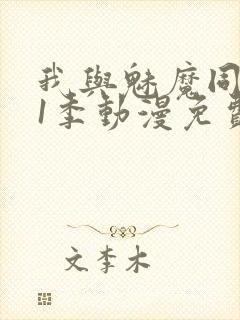 我與魅魔同
1季動漫免費
文李木